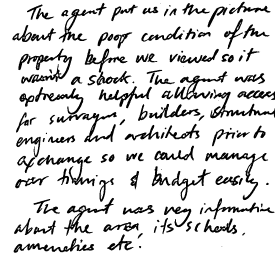 The agent put us in the picture
about the poor condition of the
property before we viewed so it
wasn't a shock. The agent was
extremely helpful allowing access
for surveyors, builders, structural
engineers and architects prior to
exchange so we could manage
our timings & budget easily.
The agent was very informative
about the area, its schools,
amenities etc.